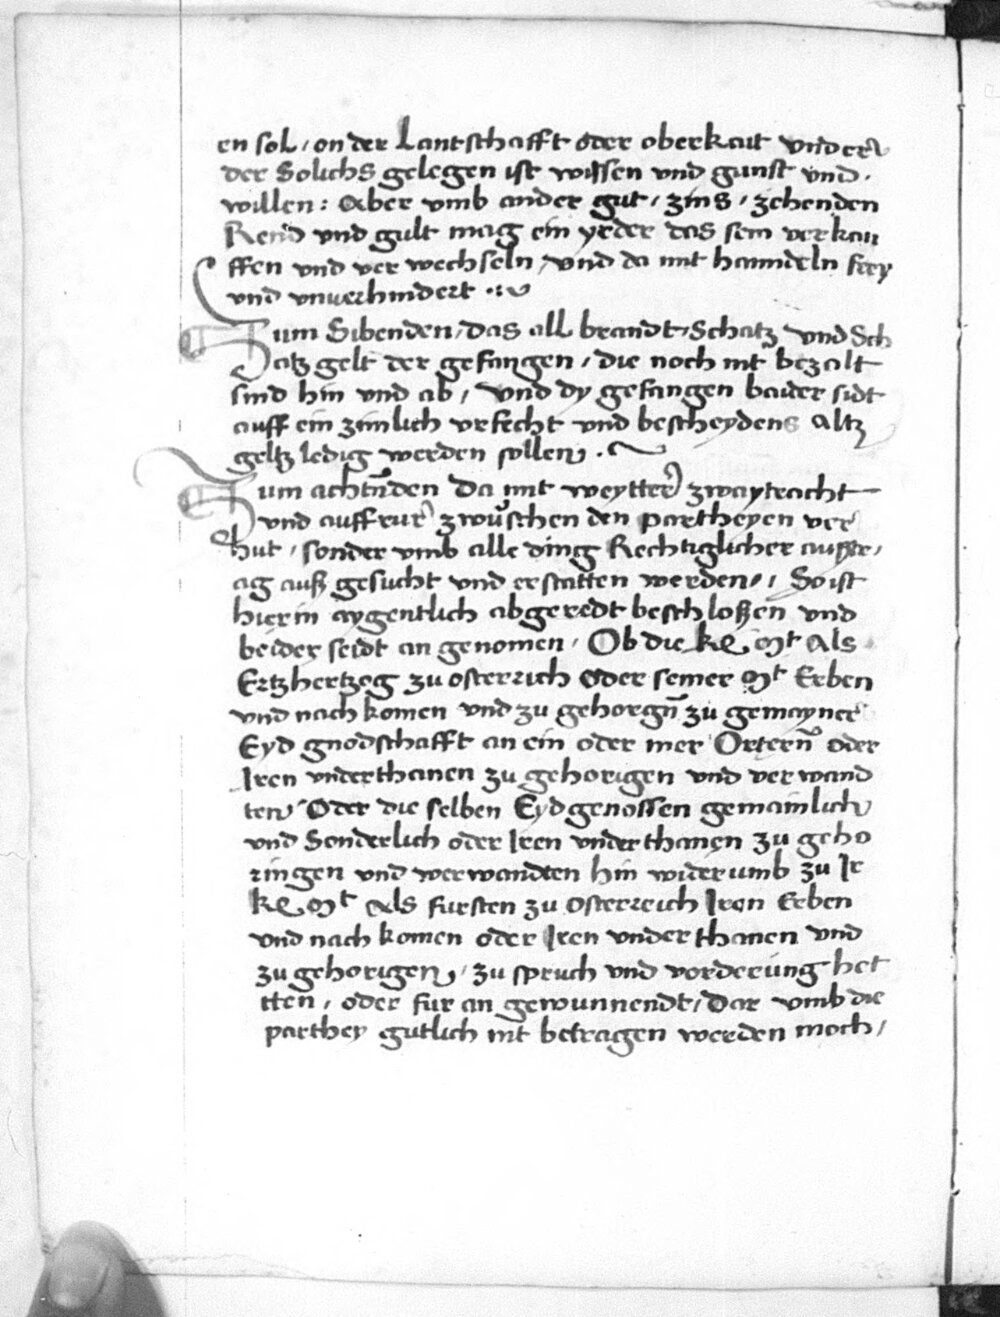 en sol / on der Lantschafft oder oberkait vnder
der Solichs gelegen ist wissen vnd gunst vnd
willen : Aber vmb ander gut / zins / zehenden
Rend vnd gult mag ein yeder das sein verkau
ffen vnd ver wechseln / vnd da mit hanndeln frey
vnd vnuerhindert
Zum Sibenden / das all brandt Schatz vnd Sch
atz gelt der gefangen / die noch nit bezalt
sind hin vnd ab / vnd dy gefangen baider sidt
auff ein zimlich vrfecht vnd bescheydens Altz
geltz ledig werden sollen
Zum achtnden Da mit weytter zwaytracht
vnd auffrur zwuschen den partheyen ver
hut / sonder vmb alle ding Rechtiglicher ausstr
ag auß gesucht vnd erstatten werden / So ist
hierin aygentlich abgeredt beschloßen vnd
beider seidt an genomen / Ob die kε Mt Als
Ertzhertzog zu osterrich Oder seiner Mt Erben
vnd nach komen vnd zu gehorgn zu gemayner
Eyd gnodschafft an ein oder mer Ortern oder
Iren vnderthanen zu gehorigen vnd ver wand
ten Oder die selben Eydgenossen gemainlich
vnd Sonderlich oder Iren vnderthanen zu geho
ringen vnd werwandten hin wider umb zu Ir
kε Mt Als fursten zu Osterreich Iron Erben
vnd nach komen oder Iren vnderthanen vnd
zu gehorigen / zu spruch vnd vorderung het
tten / oder fur an gewunnendt / Dar vmb die
parthey gutlich nit betragen werden moch /